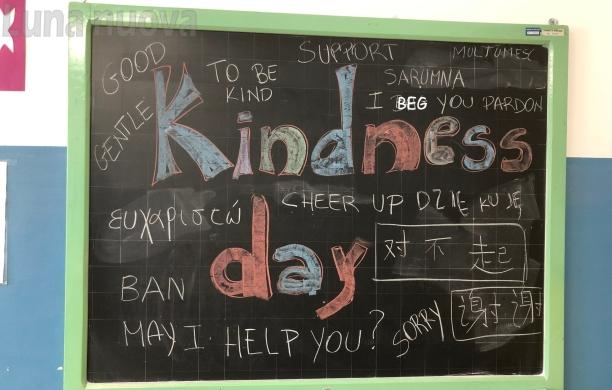 Luna nuova
GOOD
SUPPORT
MULTUMESC
TO BE
KIND
SARUMNA
I BEG YOU PARDON
GENTLE
Kindness
CHEER UP DZIĘ KUJĘ
ευχαριστώ
day
对不起
BAN
谢谢
MAY I HELP YOU?
SORRY